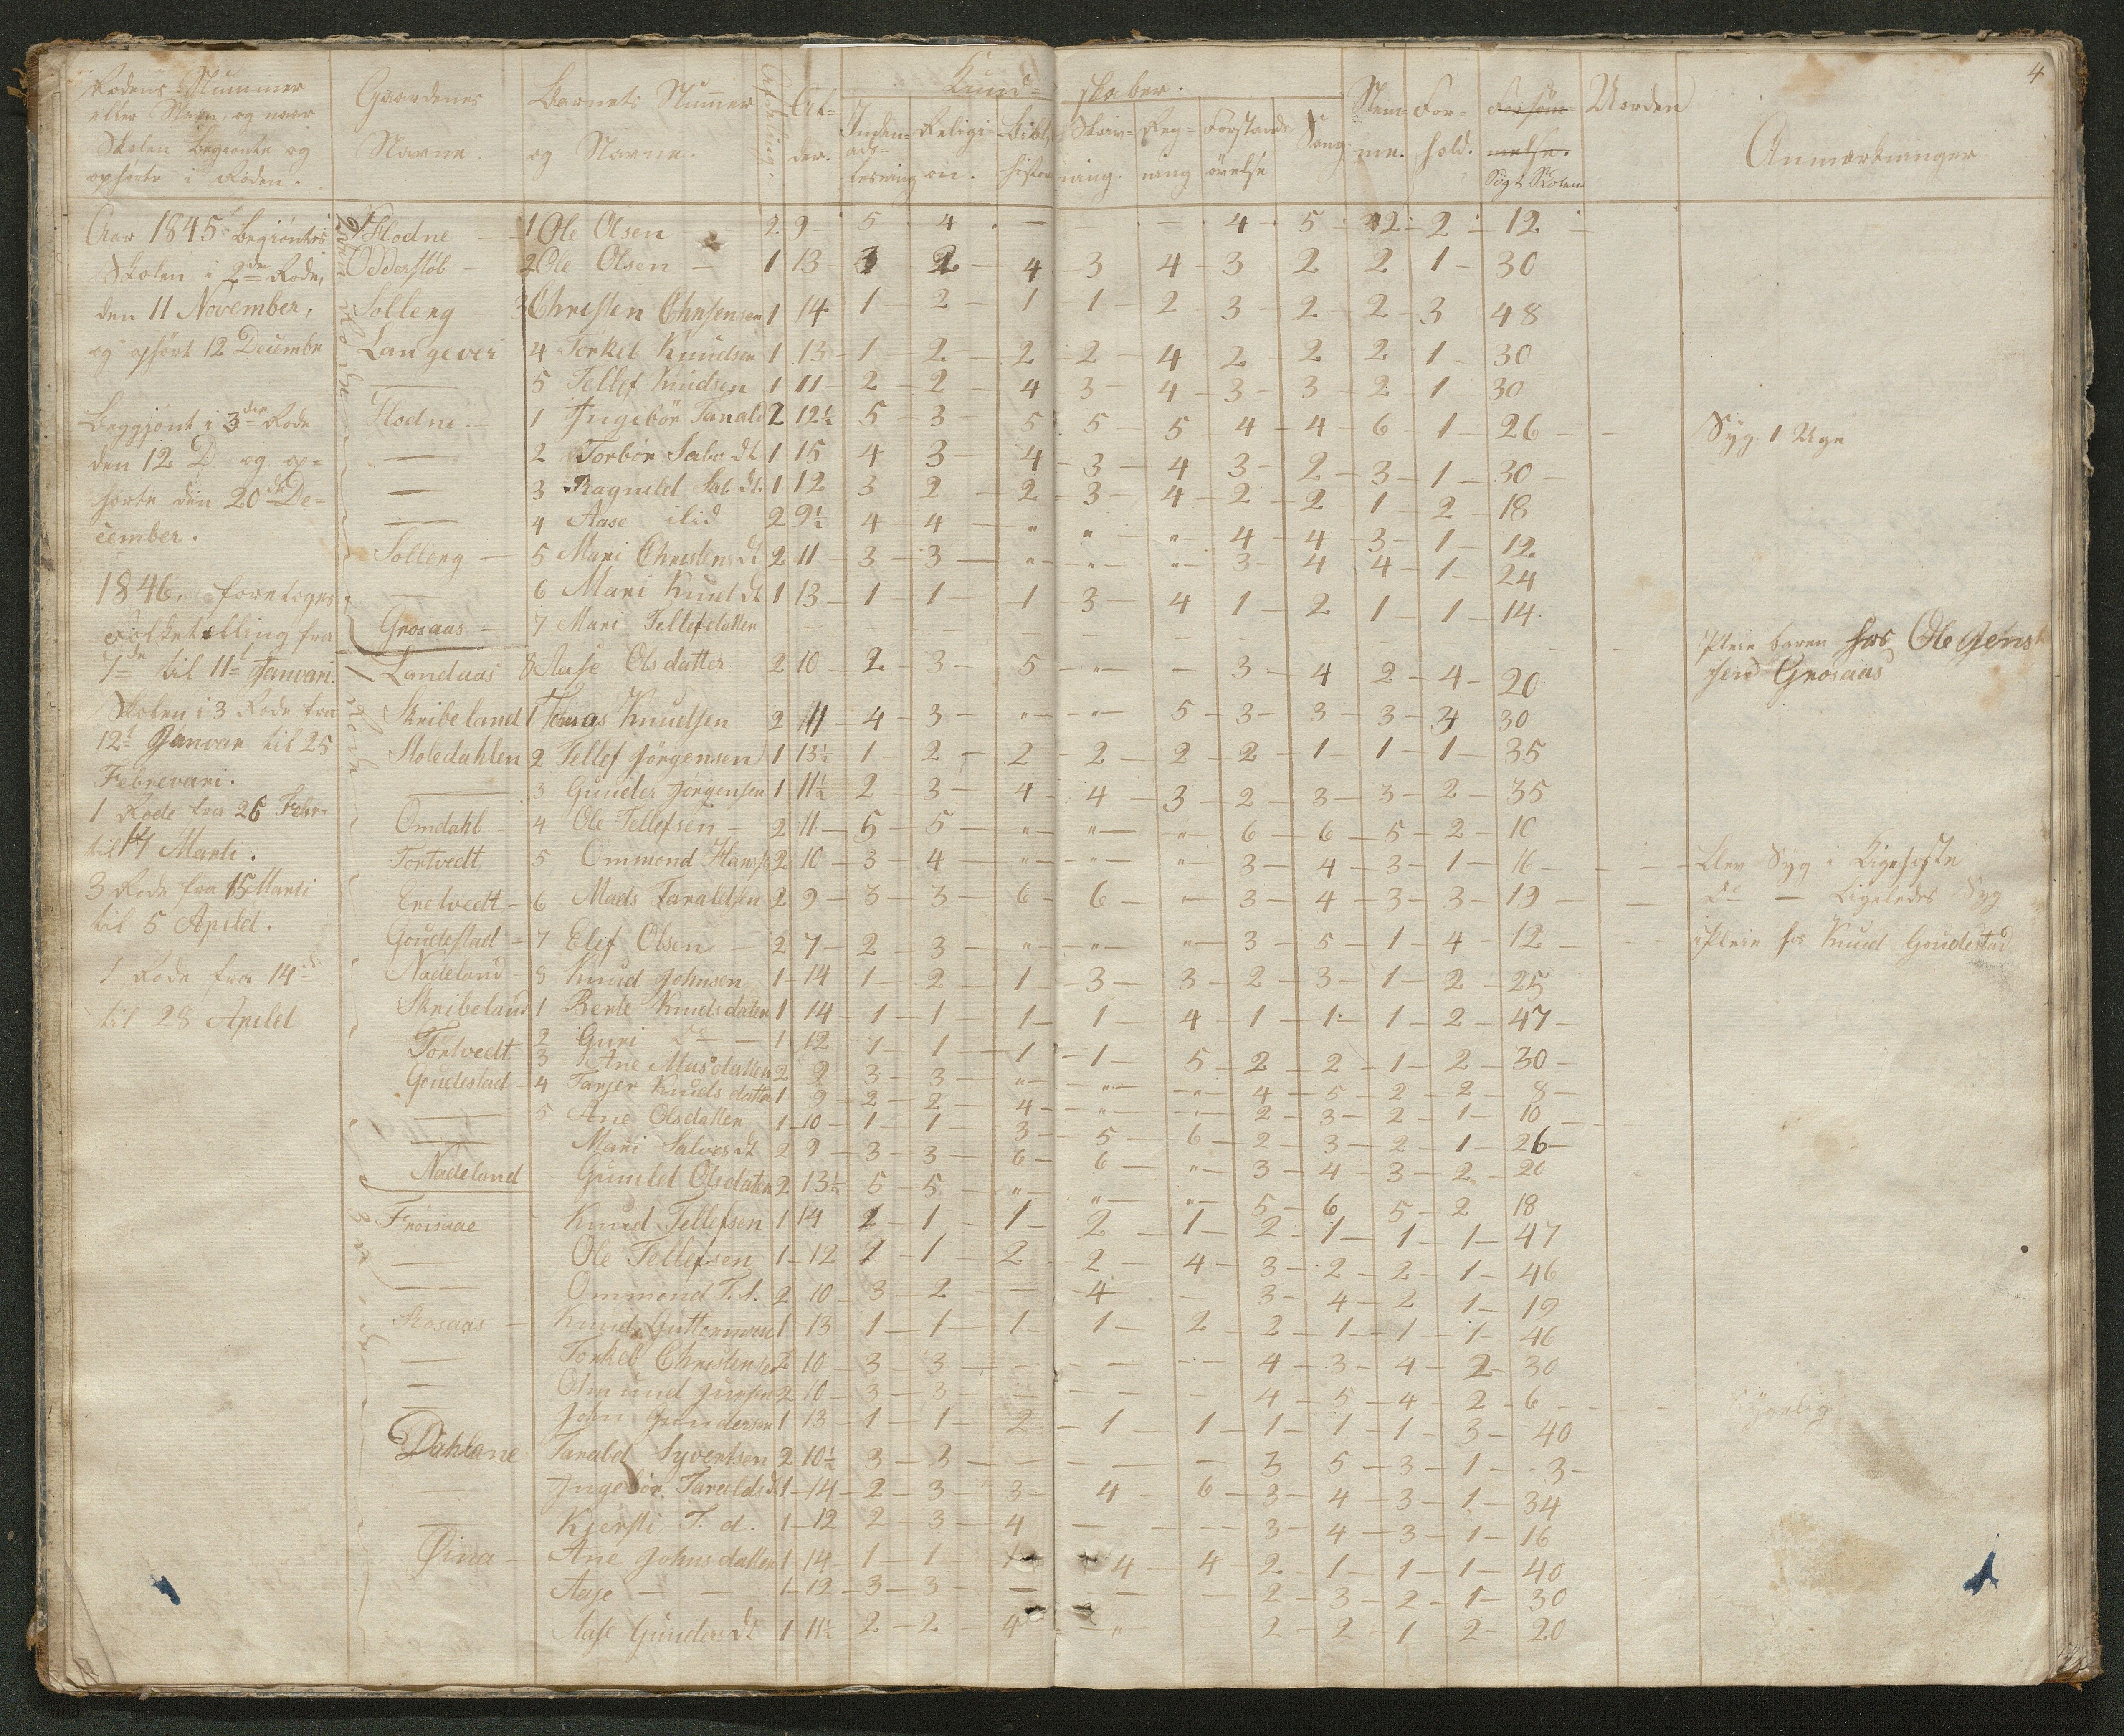 4
Rodens Nummer
eller Navn, og naar
Skolen begyndte og
ophørte i Roden.
Gaardenes
Navne.
Barnets Nummer
og Navne.
Afdeling.
Al-
der.
Kund-
skaber.
Inden-
ads-
læsning
Religi-
on.
Bibl.
histor
Skriv-
ning.
Reg-
ning
Forstands
øvelse
Sang
Nem-
me.
For-
hold.
Forsøm-
melse.
Søgt Skolen
Uorden
Anmærkninger
Aar 1845 begyntes
Skolen i 2de Rode,
den 11 November,
og ophørt 12 Decembr
Beggjønt i 3die Rode
den 12 D og op-
hørte den 20de De-
cember.
1846. foretoges
Folketælling fra
7de til 11te Januari.
Skolen i 3 Rode fra
12te Januar til 25
Februari.
1 Rode fra 26 Febr.
til 14 Marti.
3 Rode fra 15 Marti
til 5 April.
1 Rode fra 14de
til 28 April
Flodne - 1 Ole Olsen 2 9 5 4 - - 4 5 2 2 12
Odderstöb - 2 Ole Olsen - 1 13 3 2 4 3 4 3 2 2 1 30
Solleng - 3 Christen Chrisensen 1 14 1 2 1 1 2 3 2 2 3 48
Langevei 4 Torkel Knudsen 1 13 1 2 2 2 4 2 2 2 1 30
— 5 Tellef Knudsen 1 11 2 2 4 3 4 3 3 2 1 30
Flodne - 1 Ingebör Tarald 2 12½ 5 3 5 5 5 4 4 6 1 26 - Syg 1 Uge
— 2 Torbör Salv. dt 1 15 4 3 4 3 4 3 2 3 1 30
— 3 Ragnild Sal. dt. 1 12 3 2 2 3 4 2 2 1 2 18
— 4 Aase ilid 2 9½ 4 4 " " " 4 4 3 1 12
Solleng - 5 Mari Christens dt 2 11 3 3 " " " 3 4 4 1 24
— 6 Mari Knud dt 1 13 1 1 1 3 4 1 2 1 1 14
Grosaas - 7 Mari Tellefdatter - - - - - Pleie baren hos Ole Jens
sen Grosaas
Landaas 8 Aase Olsdatter 2 10 2 3 5 " - 3 4 2 4 20
Skribeland 1 Tomas Knudsen 2 11 4 3 " " 5 3 3 3 4 30
Stoledahlen 2 Tellef Jörgensen 1 13½ 1 2 2 2 2 2 1 1 1 35
— 3 Gunder Jörgensen 1 11½ 2 3 4 4 3 2 3 3 2 35
Omdahl - 4 Ole Tellefsen - 2 11 5 5 " " " 6 6 5 2 10
Tortvedt 5 Ommond Hans. 2 10 3 4 " " " 3 4 3 1 16 - Blev Syg i Kighoste
Eretvedt - 6 Mads Taraldsen 2 9 3 3 6 6 - 3 4 3 3 19 - Do - Ligeledes Syg
Goudestad - 7 Elef Olsen - 2 7 2 3 " " " 3 5 1 4 12 - i Pleie hos Knud Goudestad
Nadeland - 8 Knud Johnsen 1 14 1 2 1 3 3 2 3 1 2 25
Skribeland 1 Berte Knudsdater 1 14 1 1 1 1 4 1 1 1 2 47
2 Guri Do - 1 12 1 1 1 1 5 2 2 1 2 30
Tortvedt 3 Ane Masdatter 2 9 3 3 " " " 4 5 2 2 8
Goudestad - 4 Tarjer Knuds datter 1 9 2 2 4 " - 2 3 2 1 10
— 5 Ane Olsdatter 1 10 1 1 3 5 6 2 3 2 1 26
— Mari Salves dt 2 9 3 3 6 6 " 3 4 3 2 20
Nadeland Gunild Olsdater 2 13½ 5 5 " " " 5 6 5 2 18
Froisaae Knud Tellefsen 1 14 1 1 1 2 1 2 1 1 1 47
— Ole Tellefsen 1 12 1 1 2 2 4 3 2 2 1 46
— Ommond T. s. 2 10 3 2 - 4 - 3 4 2 1 19
Rosaas - Knud Guttormsen 1 13 1 1 1 1 2 2 1 1 1 46
— Torkel Christensen 2 10 3 3 - - - 4 3 4 2 30
— Omund 2 10 3 3 - - - 4 5 4 2 6 - Sygelig
— John Gundersen 1 13 1 1 2 1 1 1 1 1 3 40
Dahlane Tarald Syvertsen 2 10½ 3 3 - - - 3 5 3 1 3
— Ingebör Taralds d 1 14 2 3 3 4 6 3 4 3 1 34
— Kjersti T. d. 1 12 2 3 4 - - 3 4 3 1 16
Øina - Ane Johnsdatter 1 14 1 1 1 4 4 2 1 1 1 40
Aase - - 1 12 3 3 - - - 2 3 2 1 30
Aase Gunders dt 1 11½ 2 2 4 " - 2 2 1 2 20